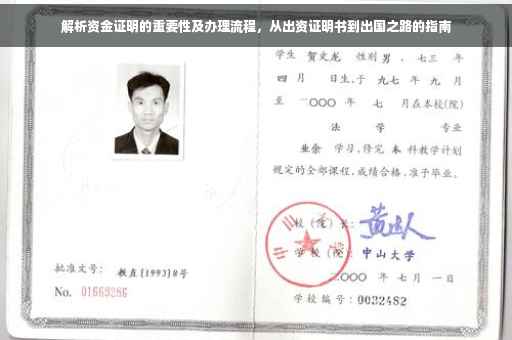 解析资金证明的重要性及办理流程，从出资证明书到出国之路的指南
学生 贺文龙 性别 男 、七三 年
四 月 日生,于 九七 年 九 月
至 二〇〇〇 年 七 月在本校(院)
法 学 专业
业余 学习,修完 本 科教学计划
规定的全部课程,成绩合格,准予毕业。
校(院)长:
学校(院): 中山大学
二〇〇〇 年 七 月 一 日
批准文号: 教直[1993]8号
No. 01669286
学校编号: 0032482